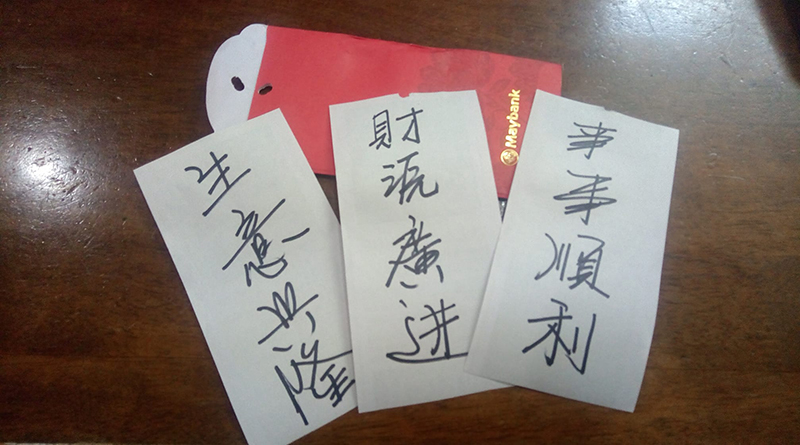 Maybank
生意兴隆
財源廣进
事事順利